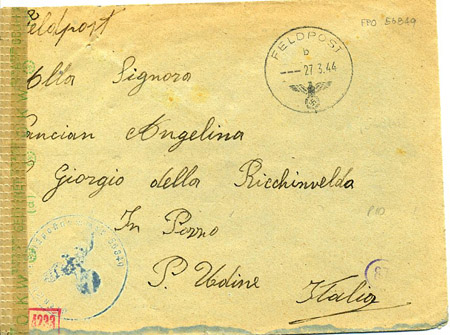 Feldpost
FPO 56840
FELDPOST
b
--- 27.3.44
Alla Signora
Cancian Angelina
Giorgio della Ricchinvelda
In Pozzo
P. Udine
Italia
4233